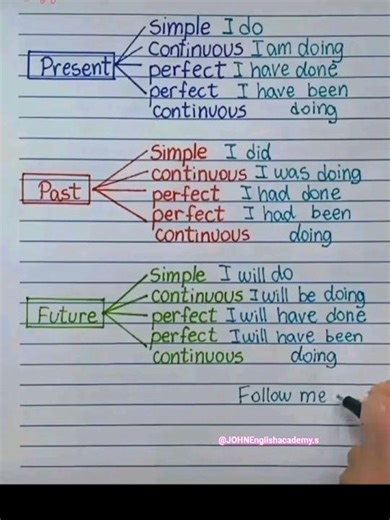 Simple I do
Continuous I am doing
Present
perfect I have done
perfect I have been
continuous doing
Simple I did
continuous I was doing
Past
perfect I had done
perfect I had been
continuous doing
Simple I will do
continuous I will be doing
Future
perfect I will have done
perfect I will have been
continuous doing
Follow me
@JOHNEnglishacademy.s